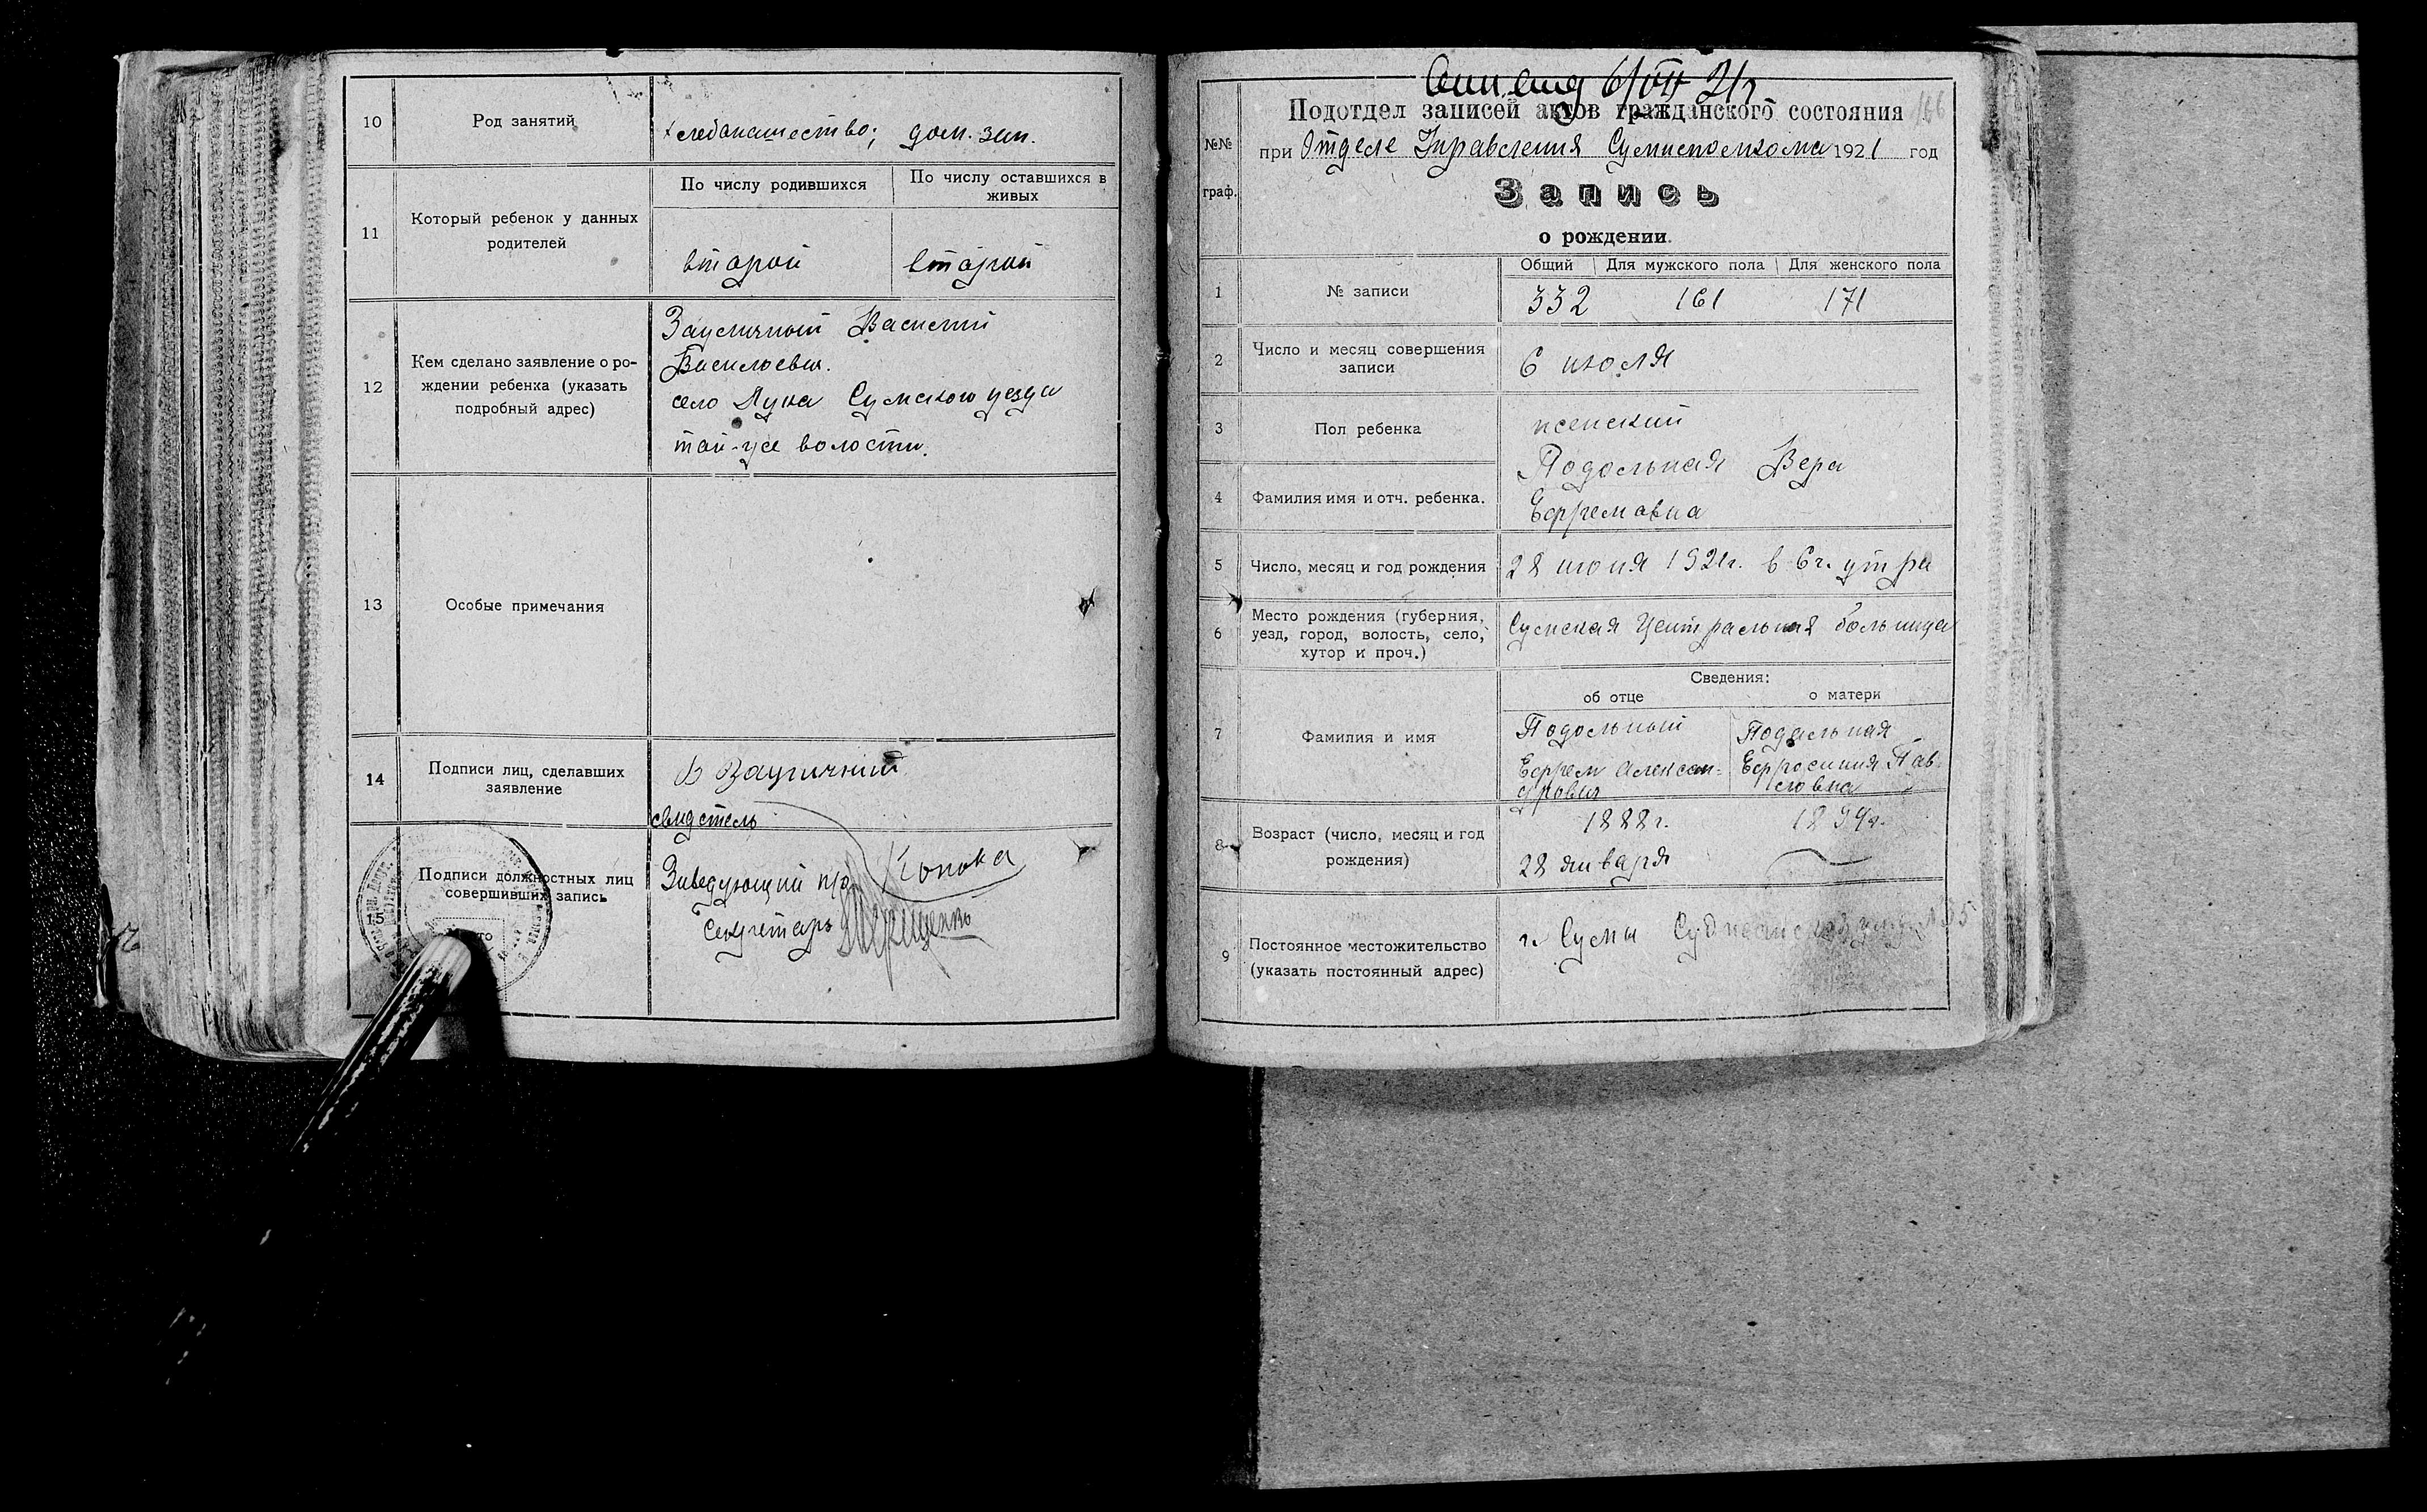 10 Род занятий хлебопашество; дом. зан.
11 Который ребенок у данных родителей
По числу родившихся По числу оставшихся в живых
второй второй
12 Кем сделано заявление о ро-
ждении ребенка (указать
подробный адрес)
Василий
Васильевич.
село Лука Сумского уезда
той-же волости.
13 Особые примечания
14 Подписи лиц, сделавших
заявление
свидетель
15 Подписи должностных лиц
совершивших запись
Заведующий п/о
Секретарь
6/VII 21г
Подотдел записей актов гражданского состояния 166
№№ граф.
при Отделе Управления Сумисполкома 1921 год
Запись
о рождении.
Общий Для мужского пола Для женского пола
1 № записи 332 161 171
2 Число и месяц совершения
записи
6 июля
3 Пол ребенка женский
4 Фамилия имя и отч. ребенка.
Подольная Вера
Ефремовна
5 Число, месяц и год рождения 28 июня 1921г. в 6 ч. утра
6 Место рождения (губерния,
уезд, город, волость, село,
хутор и проч.)
Сумская Центральная больница
Сведения:
об отце о матери
7 Фамилия и имя
Подольный
Ефрем Алексан-
дрович
Подольная
Ефросиния Пав-
ловна
8 Возраст (число, месяц и год
рождения)
1888г.
28 января
1894г.
9 Постоянное местожительство
(указать постоянный адрес)
г. Сумы